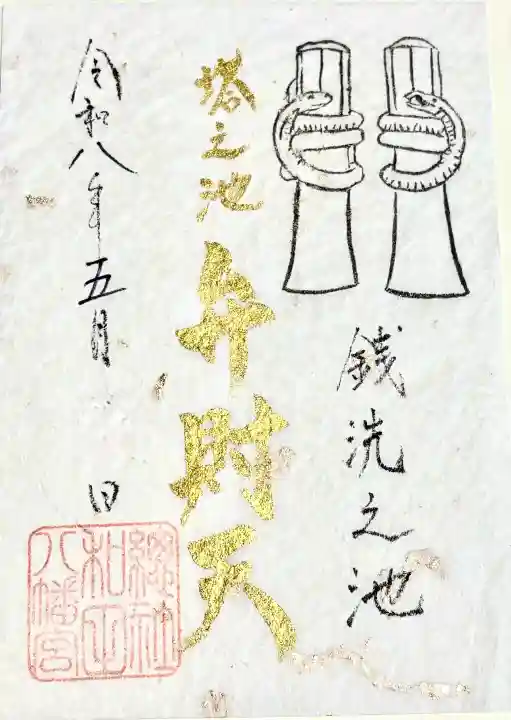 銭洗之池
塔之池
弁財天
令和八年五月 日
総社
和田
八幡宮